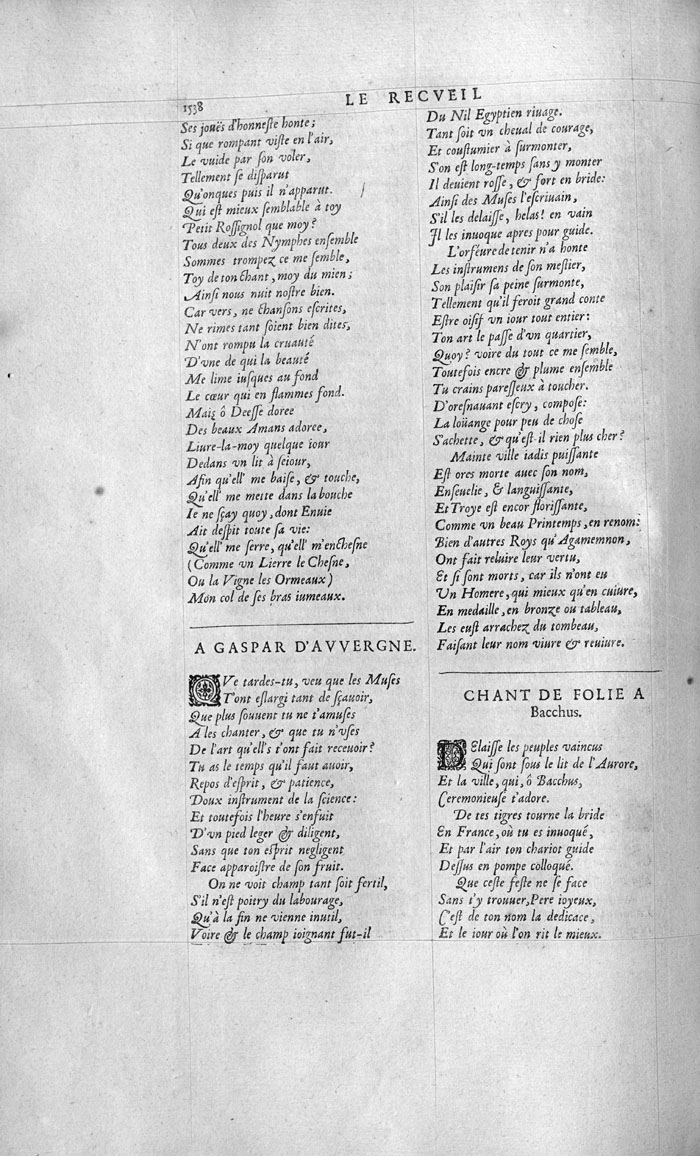 1538
LE RECVEIL
Ses jouës d'honneſte honte;
Si que rompant viſte en l'air,
Le vuide par ſon voler,
Tellement ſe diſparut
Qu'onques puis il n'apparut.
Qui eſt mieux ſemblable à toy
Petit Roſſignol que moy?
Tous deux des Nymphes enſemble
Sommes trompez ce me ſemble,
Toy de ton chant, moy du mien;
Ainſi nous nuit noſtre bien.
Car vers, ne chanſons eſcrites,
Ne rimes tant ſoient bien dites,
N'ont rompu la cruauté
D'vne de qui la beauté
Me lime iuſques au fond
Le cœur qui en flammes fond.
Mais ô Deeſſe doree
Des beaux Amans adoree,
Liure-la-moy quelque iour
Dedans vn lit à ſeiour,
Afin qu'ell' me baiſe, & touche,
Qu'ell' me mette dans la bouche
Ie ne ſçay quoy, dont Enuie
Ait deſpit toute ſa vie:
Qu'ell' me ſerre, qu'ell' m'encheſne
(Comme vn Lierre le Cheſne,
Ou la Vigne les Ormeaux)
Mon col de ſes bras iumeaux.
A GASPAR D'AVVERGNE.
QVe tardes-tu, veu que les Muſes
T'ont eſlargi tant de ſçauoir,
Que plus ſouuent tu ne t'amuſes
A les chanter, & que tu n'vſes
De l'art qu'ell's t'ont fait receuoir?
Tu as le temps qu'il faut auoir,
Repos d'eſprit, & patience,
Doux inſtrument de la ſcience:
Et toutefois l'heure s'enfuit
D'vn pied leger & diligent,
Sans que ton eſprit negligent
Face apparoiſtre de ſon fruit.
On ne voit champ tant ſoit fertil,
S'il n'eſt poitry du labourage,
Qu'à la fin ne vienne inutil,
Voire & le champ ioignant fut-il
Du Nil Egyptien riuage.
Tant ſoit vn cheual de courage,
Et couſtumier à ſurmonter,
S'on eſt long-temps ſans y monter
Il deuient roſſe, & fort en bride:
Ainſi des Muſes l'eſcriuain,
S'il les delaiſſe, helas! en vain
Il les inuoque apres pour guide.
L'orféure de tenir n'a honte
Les inſtrumens de ſon meſtier,
Son plaiſir ſa peine ſurmonte,
Tellement qu'il feroit grand conte
Eſtre oiſif vn iour tout entier:
Ton art le paſſe d'vn quartier,
Quoy? voire du tout ce me ſemble,
Toutefois encre & plume enſemble
Tu crains pareſſeux à toucher.
D'oreſnauant eſcry, compoſe:
La loüange pour peu de choſe
S'achette, & qu'eſt-il rien plus cher?
Mainte ville iadis puiſſante
Eſt ores morte auec ſon nom,
Enſeuelie, & languiſſante,
Et Troye eſt encor floriſſante,
Comme vn beau Printemps, en renom:
Bien d'autres Roys qu'Agamemnon,
Ont fait reluire leur vertu,
Et ſi ſont morts, car ils n'ont eu
Vn Homere, qui mieux qu'en cuiure,
En medaille, en bronze ou tableau,
Les euſt arrachez du tombeau,
Faiſant leur nom viure & reuiure.
CHANT DE FOLIE A
Bacchus.
DElaiſſe les peuples vaincus
Qui ſont ſous le lit de l'Aurore,
Et la ville, qui, ô Bacchus,
Ceremonieuſe t'adore.
De tes tigres tourne la bride
En France, où tu es inuoqué,
Et par l'air ton chariot guide
Deſſus en pompe colloqué.
Que ceſte feſte ne ſe face
Sans t'y trouuer, Pere ioyeux,
C'eſt de ton nom la dedicace,
Et le iour où l'on rit le mieux.